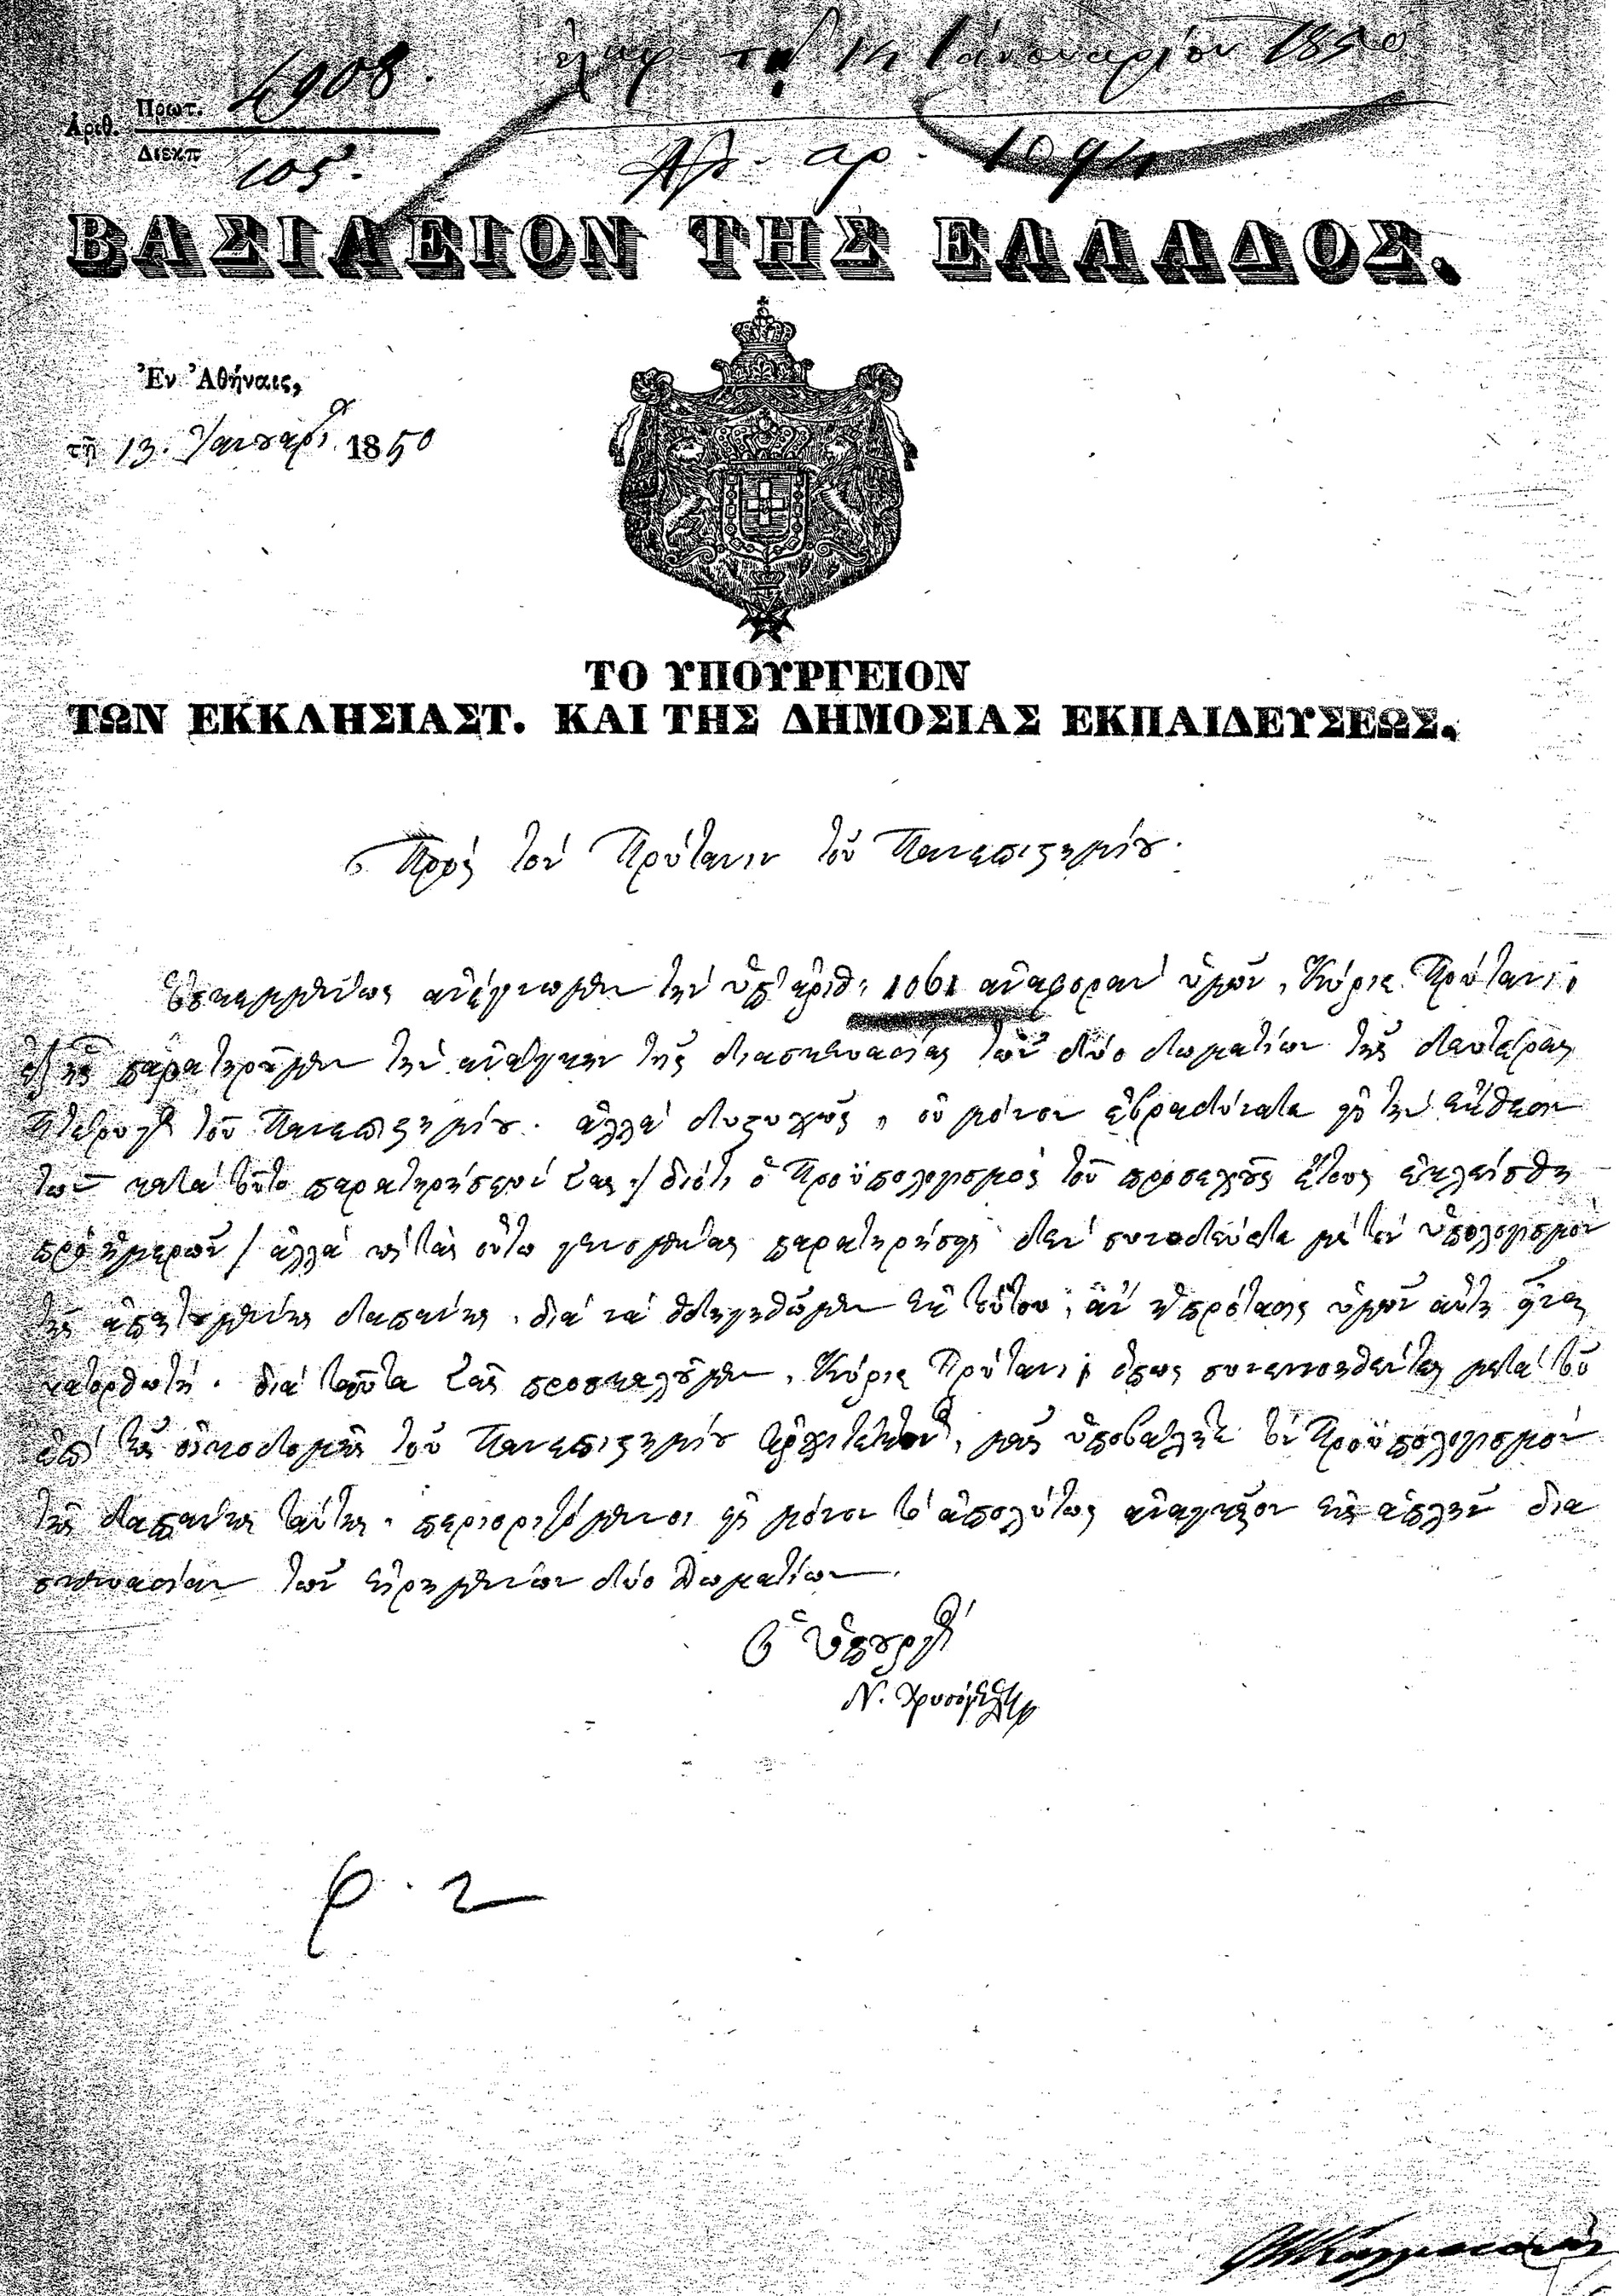 ἐλήφ τῇ 14 Ἰανουαρίου 1850
Ἀριθ. Πρωτ. 4908.
Διεκπ 105.
Ἀρ. 1094
ΒΑΣΙΛΕΙΟΝ ΤΗΣ ΕΛΛΑΔΟΣ.
Ἐν Ἀθήναις,
τῇ 13. Ἰανουαρίου 1850
ΤΟ ΥΠΟΥΡΓΕΙΟΝ
ΤΩΝ ΕΚΚΛΗΣΙΑΣΤ. ΚΑΙ ΤΗΣ ΔΗΜΟΣΙΑΣ ΕΚΠΑΙΔΕΥΣΕΩΣ.
Πρὸς τὸν Πρύτανιν τοῦ Πανεπιστημίου.
Ἐσκεμμένως ἀνέγνωμεν τὴν ὑπ' ἀριθ: 1061 ἀναφορὰν ὑμῶν, Κύριε Πρύτανι,
ἐξ ἧς παρατηροῦμεν τὴν ἀνάγκην τῆς διασκευασίας τῶν δύο δωματίων τῆς δευτέρας
πτέρυγος τοῦ Πανεπιστημίου. ἀλλὰ δυστυχῶς, οὐ μόνον ἐβραδύνατε εἰς τὴν ἔκθεσιν
τῶν κατὰ τοῦτο παρατηρήσεών σας /διότι ὁ Προϋπολογισμὸς τοῦ προσεχοῦς ἔτους ἐκλείσθη
πρὸ ἡμερῶν/ ἀλλὰ καὶ τὰς οὕτω γενομένας παρατηρήσεις δὲν συνοδεύετε μὲ τὸν ὑπολογισμὸν
τῆς ἀπαιτουμένης δαπάνης, διὰ νὰ ὁδηγηθῶμεν ἐκ τούτου, ἂν ἡ πρότασις ὑμῶν αὕτη ἦναι
κατορθωτή. διὰ ταῦτα σᾶς προσκαλοῦμεν, Κύριε Πρύτανι, ὅπως συνεννοηθέντες μετὰ τοῦ
ἐπὶ τῆς οἰκοδομῆς τοῦ Πανεπιστημίου ἀρχιτέκτονος, μᾶς ὑποβάλητε τὸν Προϋπολογισμὸν
τῆς δαπάνης ταύτης, περιοριζόμενοι εἰς μόνον τὸ ἀπολύτως ἀναγκαῖον εἰς ἁπλῆν δια
σκευασίαν τῶν εἰρημένων δύο δωματίων.
Ὁ Ὑπουργὸς
Ν. Χρυσόγελος
φ. 2